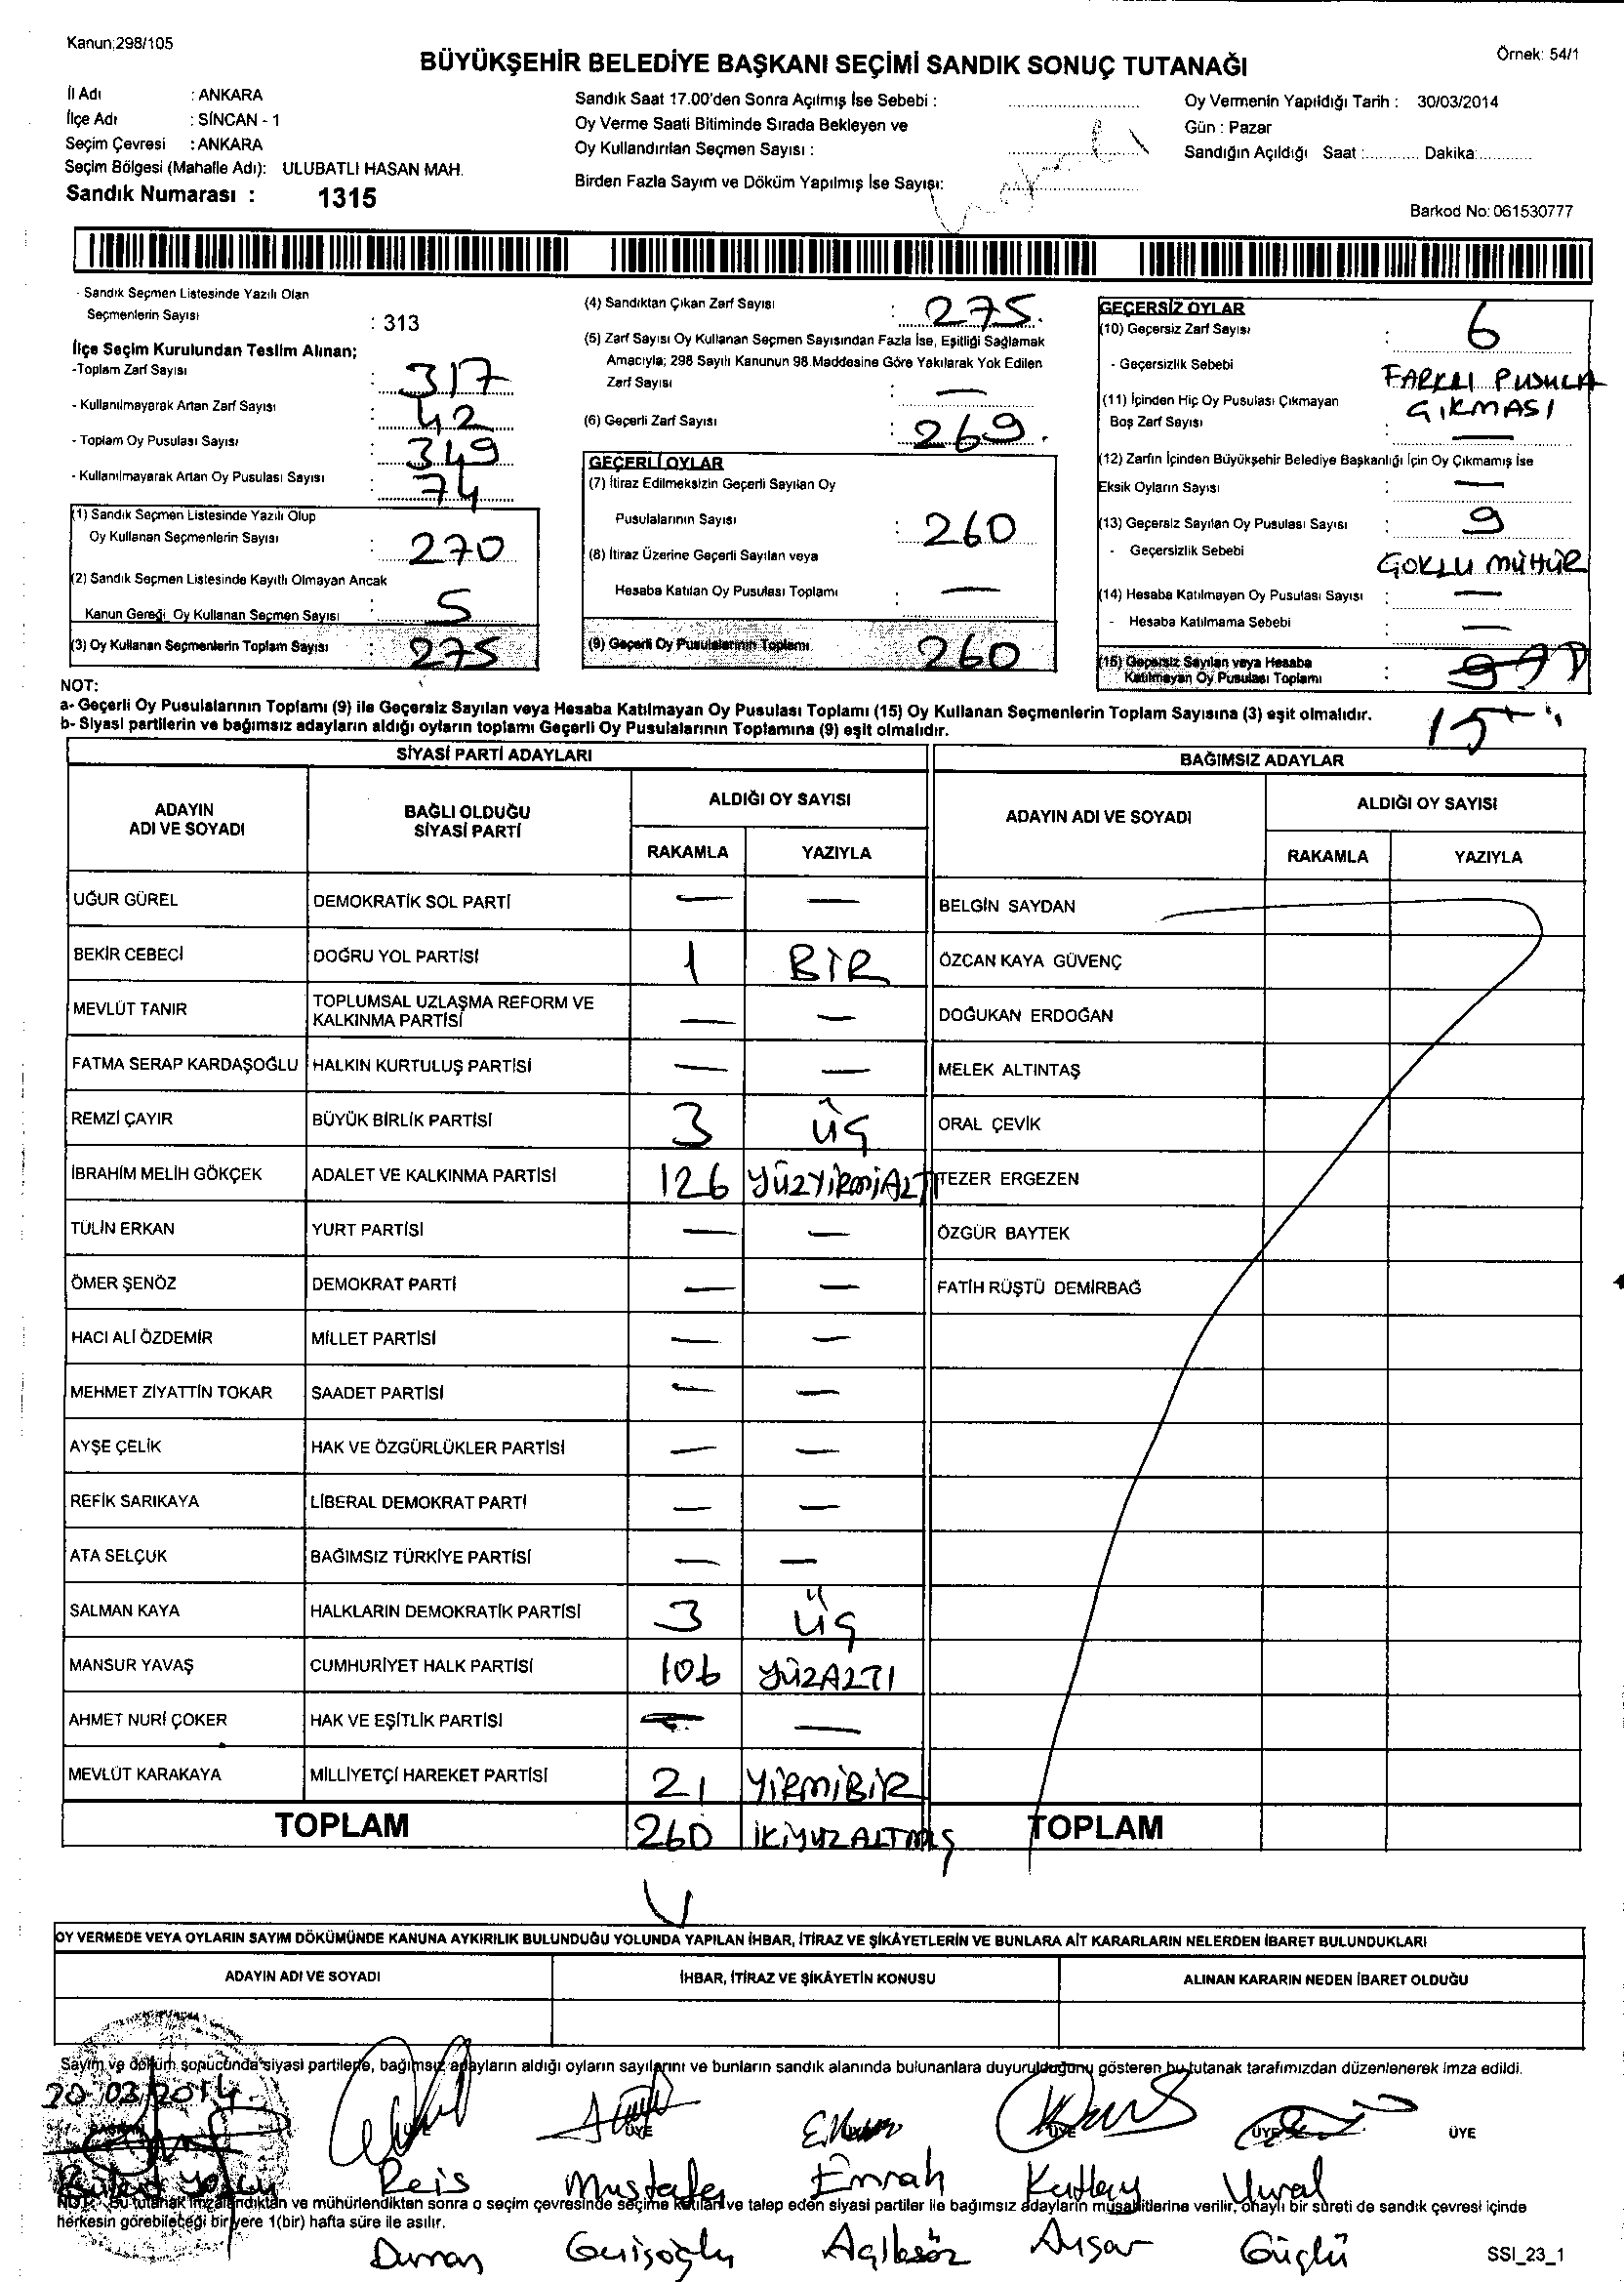 Kanun;298/105
Örnek: 54/1
BÜYÜKŞEHİR BELEDİYE BAŞKANI SEÇİMİ SANDIK SONUÇ TUTANAĞI
İl Adı : ANKARA
İlçe Adı : SİNCAN - 1
Seçim Çevresi : ANKARA
Seçim Bölgesi (Mahalle Adı): ULUBATLI HASAN MAH.
Sandık Numarası : 1315
Sandık Saat 17.00'den Sonra Açılmış İse Sebebi :
Oy Verme Saati Bitiminde Sırada Bekleyen ve
Oy Kullandırılan Seçmen Sayısı :
Birden Fazla Sayım ve Döküm Yapılmış İse Sayısı:
Oy Vermenin Yapıldığı Tarih : 30/03/2014
Gün : Pazar
Sandığın Açıldığı Saat :............ Dakika:............
Barkod No: 061530777
- Sandık Seçmen Listesinde Yazılı Olan
Seçmenlerin Sayısı : 313
İlçe Seçim Kurulundan Teslim Alınan;
-Toplam Zarf Sayısı : 317
- Kullanılmayarak Artan Zarf Sayısı : 42
- Toplam Oy Pusulası Sayısı : 349
- Kullanılmayarak Artan Oy Pusulası Sayısı : 74
(1) Sandık Seçmen Listesinde Yazılı Olup
Oy Kullanan Seçmenlerin Sayısı : 270
(2) Sandık Seçmen Listesinde Kayıtlı Olmayan Ancak
Kanun Gereği Oy Kullanan Seçmen Sayısı : 5
(3) Oy Kullanan Seçmenlerin Toplam Sayısı : 275
(4) Sandıktan Çıkan Zarf Sayısı : 275.
(5) Zarf Sayısı Oy Kullanan Seçmen Sayısından Fazla İse, Eşitliği Sağlamak
Amacıyla; 298 Sayılı Kanunun 98.Maddesine Göre Yakılarak Yok Edilen
Zarf Sayısı : —
(6) Geçerli Zarf Sayısı : 269.
GEÇERLİ OYLAR
(7) İtiraz Edilmeksizin Geçerli Sayılan Oy
Pusulalarının Sayısı : 260
(8) İtiraz Üzerine Geçerli Sayılan veya
Hesaba Katılan Oy Pusulası Toplamı : —
(9) Geçerli Oy Pusulalarının Toplamı 260
GEÇERSİZ OYLAR
(10) Geçersiz Zarf Sayısı : 6
- Geçersizlik Sebebi FARKLI PUSULA
ÇIKMASI
(11) İçinden Hiç Oy Pusulası Çıkmayan
Boş Zarf Sayısı : —
(12) Zarfın İçinden Büyükşehir Belediye Başkanlığı İçin Oy Çıkmamış İse
Eksik Oyların Sayısı : —
(13) Geçersiz Sayılan Oy Pusulası Sayısı : 9
- Geçersizlik Sebebi ÇOKLU MÜHÜR
(14) Hesaba Katılmayan Oy Pusulası Sayısı : —
- Hesaba Katılmama Sebebi —
(15) Geçersiz Sayılan veya Hesaba
Katılmayan Oy Pusulası Toplamı : 9
15
NOT:
a- Geçerli Oy Pusulalarının Toplamı (9) ile Geçersiz Sayılan veya Hesaba Katılmayan Oy Pusulası Toplamı (15) Oy Kullanan Seçmenlerin Toplam Sayısına (3) eşit olmalıdır.
b- Siyasi partilerin ve bağımsız adayların aldığı oyların toplamı Geçerli Oy Pusulalarının Toplamına (9) eşit olmalıdır.
SİYASİ PARTİ ADAYLARI
ADAYIN ADI VE SOYADI
BAĞLI OLDUĞU SİYASİ PARTİ
ALDIĞI OY SAYISI
RAKAMLA YAZIYLA
UĞUR GÜREL DEMOKRATİK SOL PARTİ — —
BEKİR CEBECİ DOĞRU YOL PARTİSİ 1 BİR
MEVLÜT TANIR TOPLUMSAL UZLAŞMA REFORM VE KALKINMA PARTİSİ — —
FATMA SERAP KARDAŞOĞLU HALKIN KURTULUŞ PARTİSİ — —
REMZİ ÇAYIR BÜYÜK BİRLİK PARTİSİ 3 ÜÇ
İBRAHİM MELİH GÖKÇEK ADALET VE KALKINMA PARTİSİ 126 YÜZYİRMİALTI
TÜLİN ERKAN YURT PARTİSİ — —
ÖMER ŞENÖZ DEMOKRAT PARTİ — —
HACI ALİ ÖZDEMİR MİLLET PARTİSİ — —
MEHMET ZİYATTİN TOKAR SAADET PARTİSİ — —
AYŞE ÇELİK HAK VE ÖZGÜRLÜKLER PARTİSİ — —
REFİK SARIKAYA LİBERAL DEMOKRAT PARTİ — —
ATA SELÇUK BAĞIMSIZ TÜRKİYE PARTİSİ — —
SALMAN KAYA HALKLARIN DEMOKRATİK PARTİSİ 3 ÜÇ
MANSUR YAVAŞ CUMHURİYET HALK PARTİSİ 106 YÜZALTI
AHMET NURİ ÇOKER HAK VE EŞİTLİK PARTİSİ — —
MEVLÜT KARAKAYA MİLLİYETÇİ HAREKET PARTİSİ 21 YİRMİBİR
TOPLAM 260 İKİYÜZALTMIŞ
BAĞIMSIZ ADAYLAR
ADAYIN ADI VE SOYADI
ALDIĞI OY SAYISI
RAKAMLA YAZIYLA
BELGİN SAYDAN
ÖZCAN KAYA GÜVENÇ
DOĞUKAN ERDOĞAN
MELEK ALTINTAŞ
ORAL ÇEVİK
TEZER ERGEZEN
ÖZGÜR BAYTEK
FATİH RÜŞTÜ DEMİRBAĞ
TOPLAM
OY VERMEDE VEYA OYLARIN SAYIM DÖKÜMÜNDE KANUNA AYKIRILIK BULUNDUĞU YOLUNDA YAPILAN İHBAR, İTİRAZ VE ŞİKÂYETLERİN VE BUNLARA AİT KARARLARIN NELERDEN İBARET BULUNDUKLARI
ADAYIN ADI VE SOYADI
İHBAR, İTİRAZ VE ŞİKÂYETİN KONUSU
ALINAN KARARIN NEDEN İBARET OLDUĞU
Sayım ve döküm sonucunda siyasi partilere, bağımsız adayların aldığı oyların sayılarını ve bunların sandık alanında bulunanlara duyurulduğunu gösteren bu tutanak tarafımızdan düzenlenerek imza edildi.
30.03.2014
ÜYE ÜYE ÜYE ÜYE
Reis Mustafa Emrah Kutlay Vural
NOT:- Bu tutanak imzalandıktan ve mühürlendikten sonra o seçim çevresinde seçime katılan ve talep eden siyasi partiler ile bağımsız adayların müşahitlerine verilir, onaylı bir sureti de sandık çevresi içinde
herkesin görebileceği bir yere 1(bir) hafta süre ile asılır.
Duran Açıksöz Avşar Güçlü
SSI_23_1